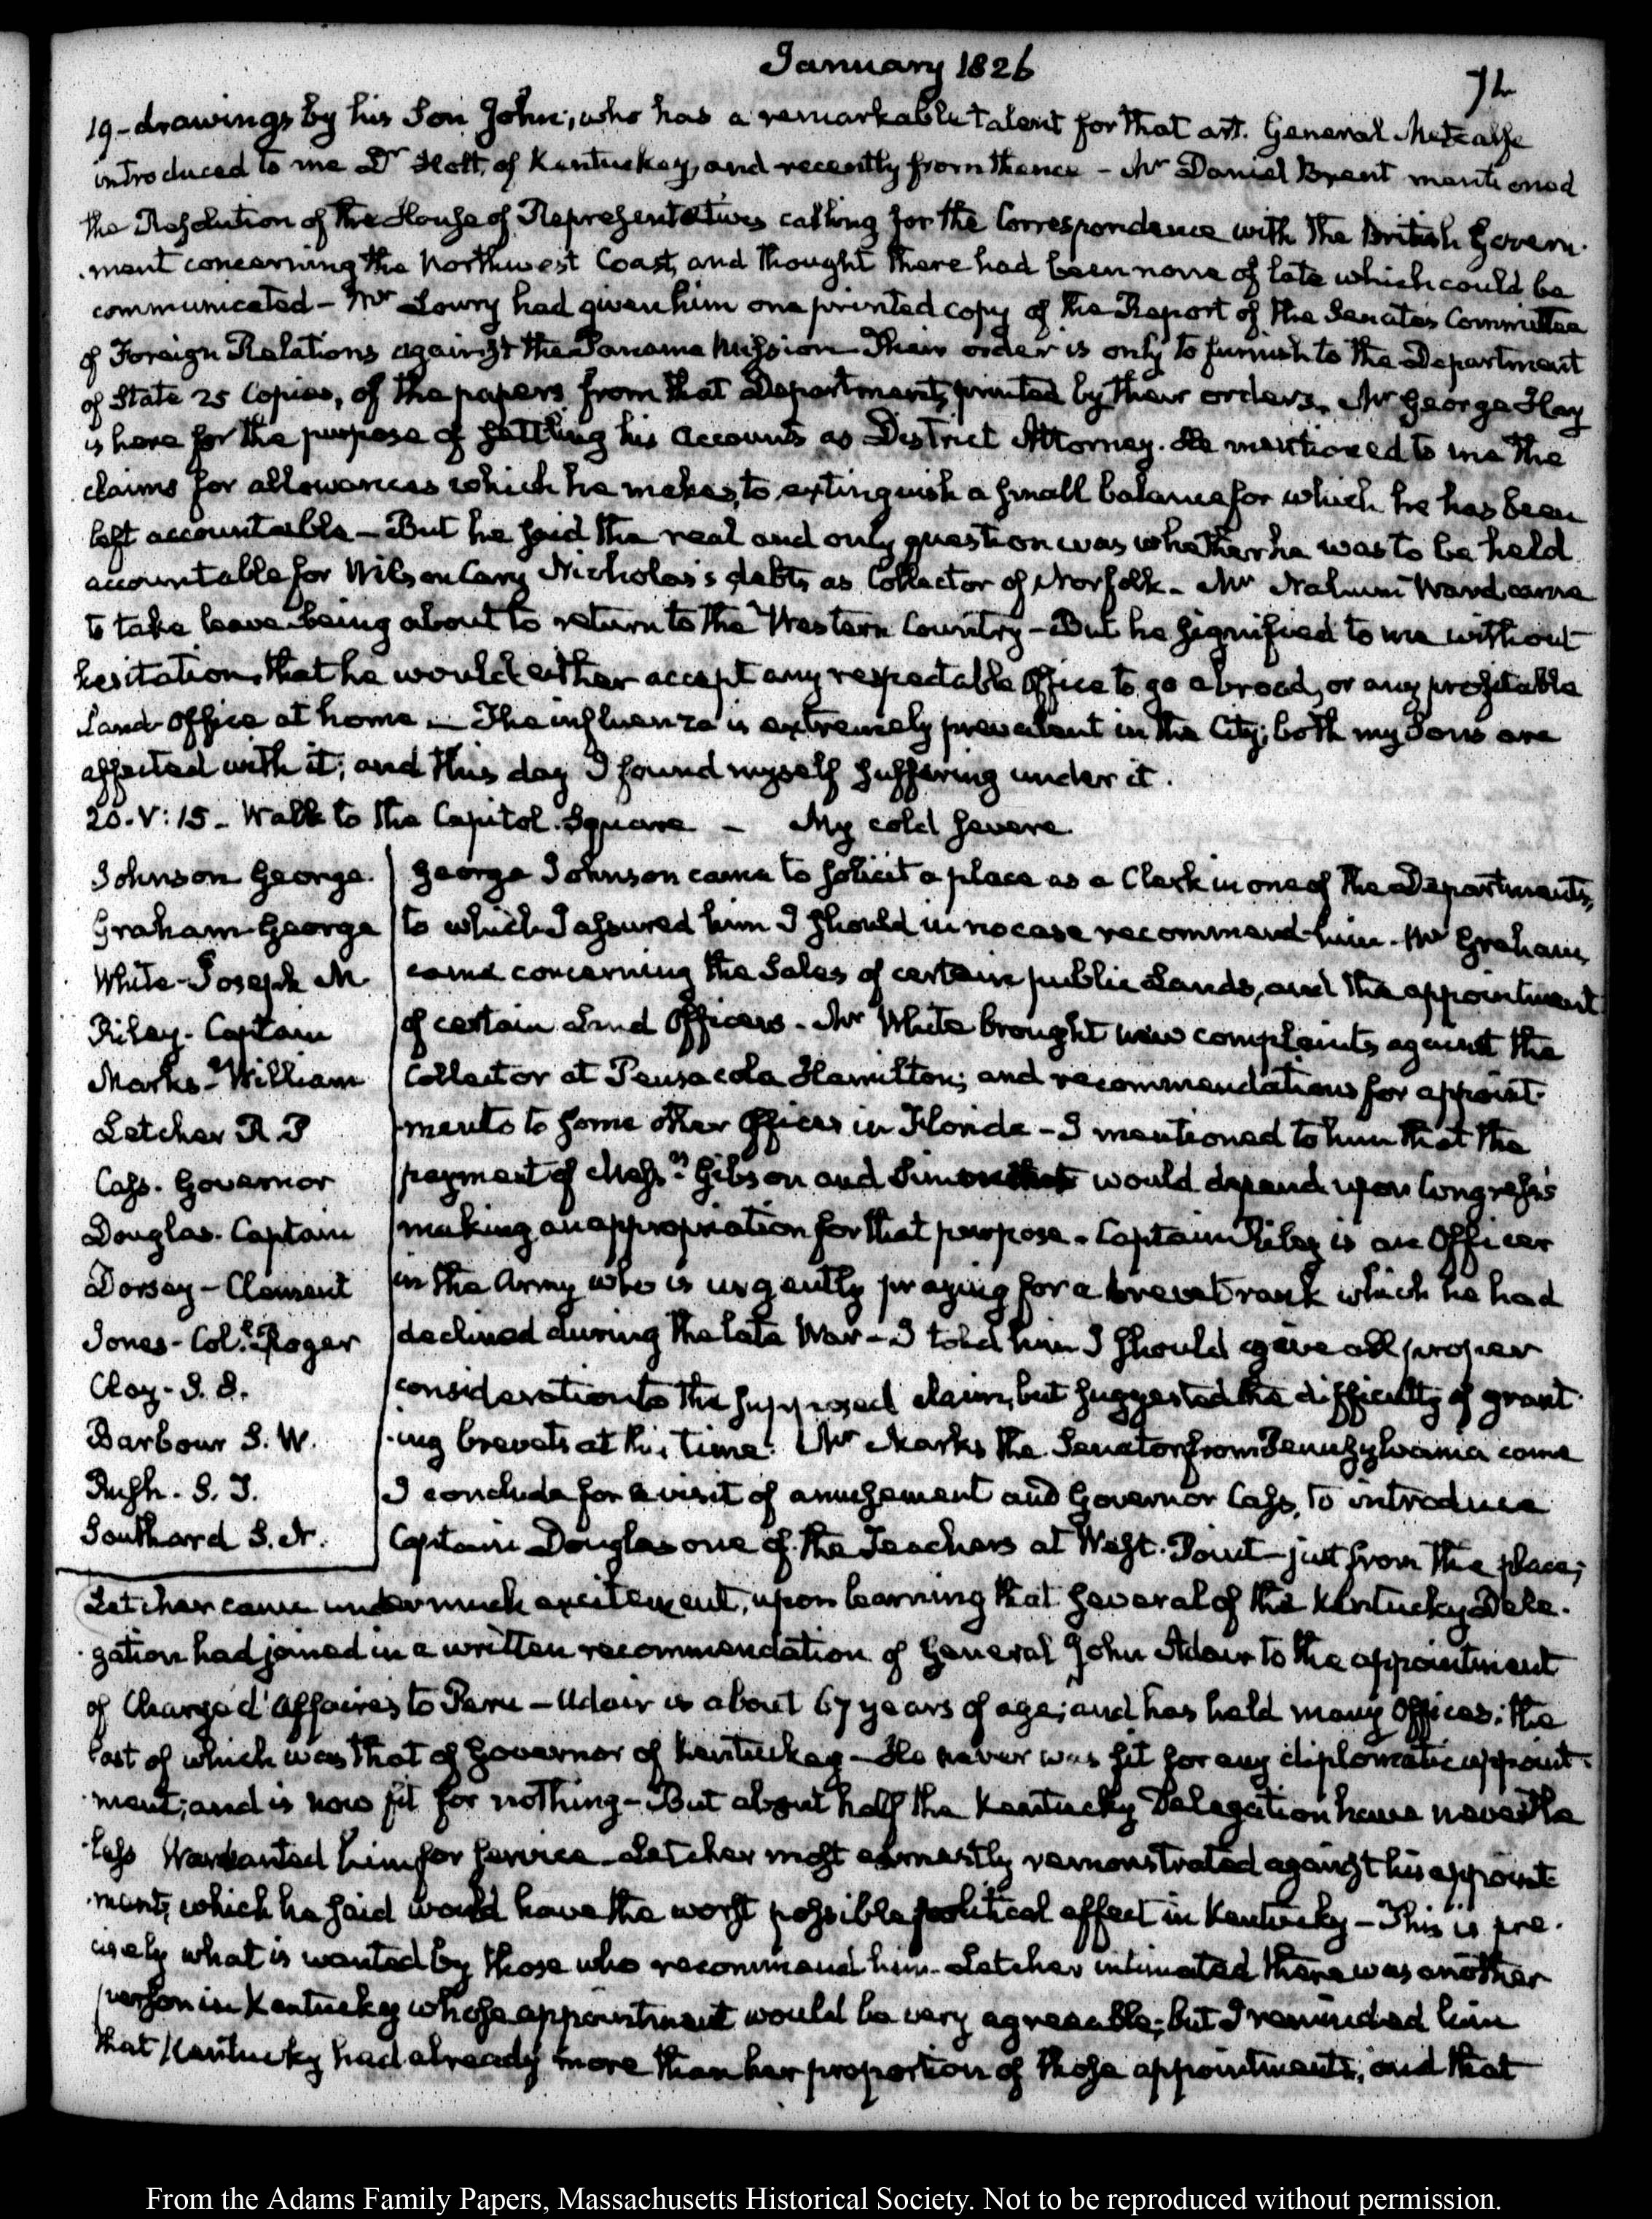 January 1826
71
19- drawings by his Son John; who has a remarkable talent for that art. General Metcalfe
introduced to me Dr Holt, of Kentuckey, and recently from thence - Mr Daniel Brent mentioned
the Resolution of the House of Representatives calling for the Correspondence with the British Govern-
-ment concerning the Northwest Coast, and thought there had been none of late which could be
communicated - Mr Lowry had given him one printed copy of the Report of the Senate's Committee
of Foreign Relations against the Panama Mission. Their order is only to furnish to the Department
of State 25 Copies, of the papers from that Department, printed by their orders. Mr George Hay
is here for the purpose of settling his accounts as District Attorney. He mentioned to me the
claims for allowances which he makes, to extinguish a small balance for which he has been
left accountable - But he said the real and only question was whether he was to be held
accountable for Wilson Cary Nicholas's debts as Collector of Norfolk - Mr Nahum Ward came
to take leave being about to return to the Western Country - But he signified to me without
hesitation, that he would either accept any respectable Office to go abroad, or any profitable
Land-Office at home - The influenza is extremely prevalent in the City; both my Sons are
affected with it; and this day I found myself suffering under it.
20. V:15 - Walk to the Capitol Square - My cold severe.
Johnson George.
Graham George
White-Joseph M
Riley- Captain
Marks- William
Letcher R P
Cass. Governor
Douglas. Captain
Dorsey - Clement
Jones - Col.l Roger
Clay - S. S.
Barbour S. W.
Rush. S. T.
Southard S. N.
George Johnson came to solicit a place as a Clerk in one of the Departments,
to which I assured him I should in no case recommend him. Mr Graham,
came concerning the Sales of certain public Lands, and the appointment
of certain Land Officers. Mr White brought new complaints against the
Collector at Pensacola Hamilton; and recommendations for appoint-
-ments to some other Offices in Florida - I mentioned to him that the
payment of Messrs Gibson and would depend upon Congress's
making an appropriation for that purpose. Captain Riley is an Officer
in the Army who is urgently praying for a brevet rank which he had
declined during the late War - I told him I should give all proper
consideration to the supposed claim, but suggested the difficulty of grant-
-ing brevets at this time. Mr Marks the Senator from Pennsylvania came
I conclude for a visit of amusement and Governor Cass, to introduce
Captain Douglas one of the Teachers at West-Point - just from the place;
Letcher came under much excitement, upon learning that several of the Kentucky Dele-
-gation had joined in a written recommendation of General John Adair to the appointment
of Chargé d'Affaires to Peru - Adair is about 67 years of age; and has held many Offices; the
last of which was that of Governor of Kentuckey - He never was fit for any diplomatic appoint-
-ment; and is now fit for nothing - But about half the Kentucky Delegation have neverthe
-less Warranted him for service - Letcher most earnestly remonstrated against his appoint-
-ment, which he said would have the worst possible political effect in Kentucky - This is pre-
cisely what is wanted by those who recommend him. Letcher intimated there was another
person in Kentuckey whose appointment would be very agreeable; but I reminded him
that Kentucky had already more than her proportion of those appointments, and that
From the Adams Family Papers, Massachusetts Historical Society. Not to be reproduced without permission.